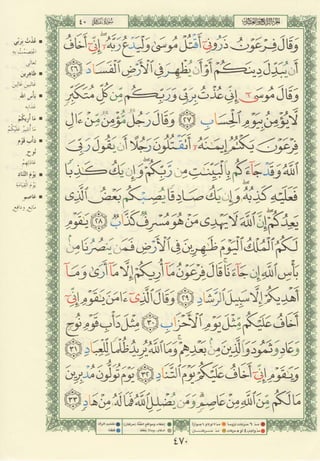 ٤٠ سورة غافر
وَقَالَ فِرْعَوْنُ ذَرُونِىٓ أَقْتُلْ مُوسَىٰ وَلْيَدْعُ رَبَّهُۥٓ إِنِّىٓ أَخَافُ
أَن يُبَدِّلَ دِينَكُمْ أَوْ أَن يُظْهِرَ فِى ٱلْأَرْضِ ٱلْفَسَادَ ﴿٢٦﴾
وَقَالَ مُوسَىٰٓ إِنِّى عُذْتُ بِرَبِّى وَرَبِّكُم مِّن كُلِّ مُتَكَبِّرٍ
لَّا يُؤْمِنُ بِيَوْمِ ٱلْحِسَابِ ﴿٢٧﴾ وَقَالَ رَجُلٌ مُّؤْمِنٌ مِّنْ ءَالِ
فِرْعَوْنَ يَكْتُمُ إِيمَٰنَهُۥٓ أَتَقْتُلُونَ رَجُلًا أَن يَقُولَ رَبِّىَ
ٱللَّهُ وَقَدْ جَآءَكُم بِٱلْبَيِّنَٰتِ مِن رَّبِّكُمْ وَإِن يَكُ كَٰذِبًا
فَعَلَيْهِ كَذِبُهُۥ وَإِن يَكُ صَادِقًا يُصِبْكُم بَعْضُ ٱلَّذِى
يَعِدُكُمْ إِنَّ ٱللَّهَ لَا يَهْدِى مَنْ هُوَ مُسْرِفٌ كَذَّابٌ ﴿٢٨﴾ يَٰقَوْمِ
لَكُمُ ٱلْمُلْكُ ٱلْيَوْمَ ظَٰهِرِينَ فِى ٱلْأَرْضِ فَمَن يَنصُرُنَا مِنۢ
بَأْسِ ٱللَّهِ إِن جَآءَنَا قَالَ فِرْعَوْنُ مَآ أُرِيكُمْ إِلَّا مَآ أَرَىٰ وَمَآ
أَهْدِيكُمْ إِلَّا سَبِيلَ ٱلرَّشَادِ ﴿٢٩﴾ وَقَالَ ٱلَّذِىٓ ءَامَنَ يَٰقَوْمِ إِنِّىٓ
أَخَافُ عَلَيْكُم مِّثْلَ يَوْمِ ٱلْأَحْزَابِ ﴿٣٠﴾ مِثْلَ دَأْبِ قَوْمِ نُوحٍ
وَعَادٍ وَثَمُودَ وَٱلَّذِينَ مِنۢ بَعْدِهِمْ وَمَا ٱللَّهُ يُرِيدُ ظُلْمًا لِّلْعِبَادِ ﴿٣١﴾
وَيَٰقَوْمِ إِنِّىٓ أَخَافُ عَلَيْكُمْ يَوْمَ ٱلتَّنَادِ ﴿٣٢﴾ يَوْمَ تُوَلُّونَ مُدْبِرِينَ
مَا لَكُم مِّنَ ٱللَّهِ مِنْ عَاصِمٍ وَمَن يُضْلِلِ ٱللَّهُ فَمَا لَهُۥ مِنْ هَادٍ ﴿٣٣﴾
٤٧٠